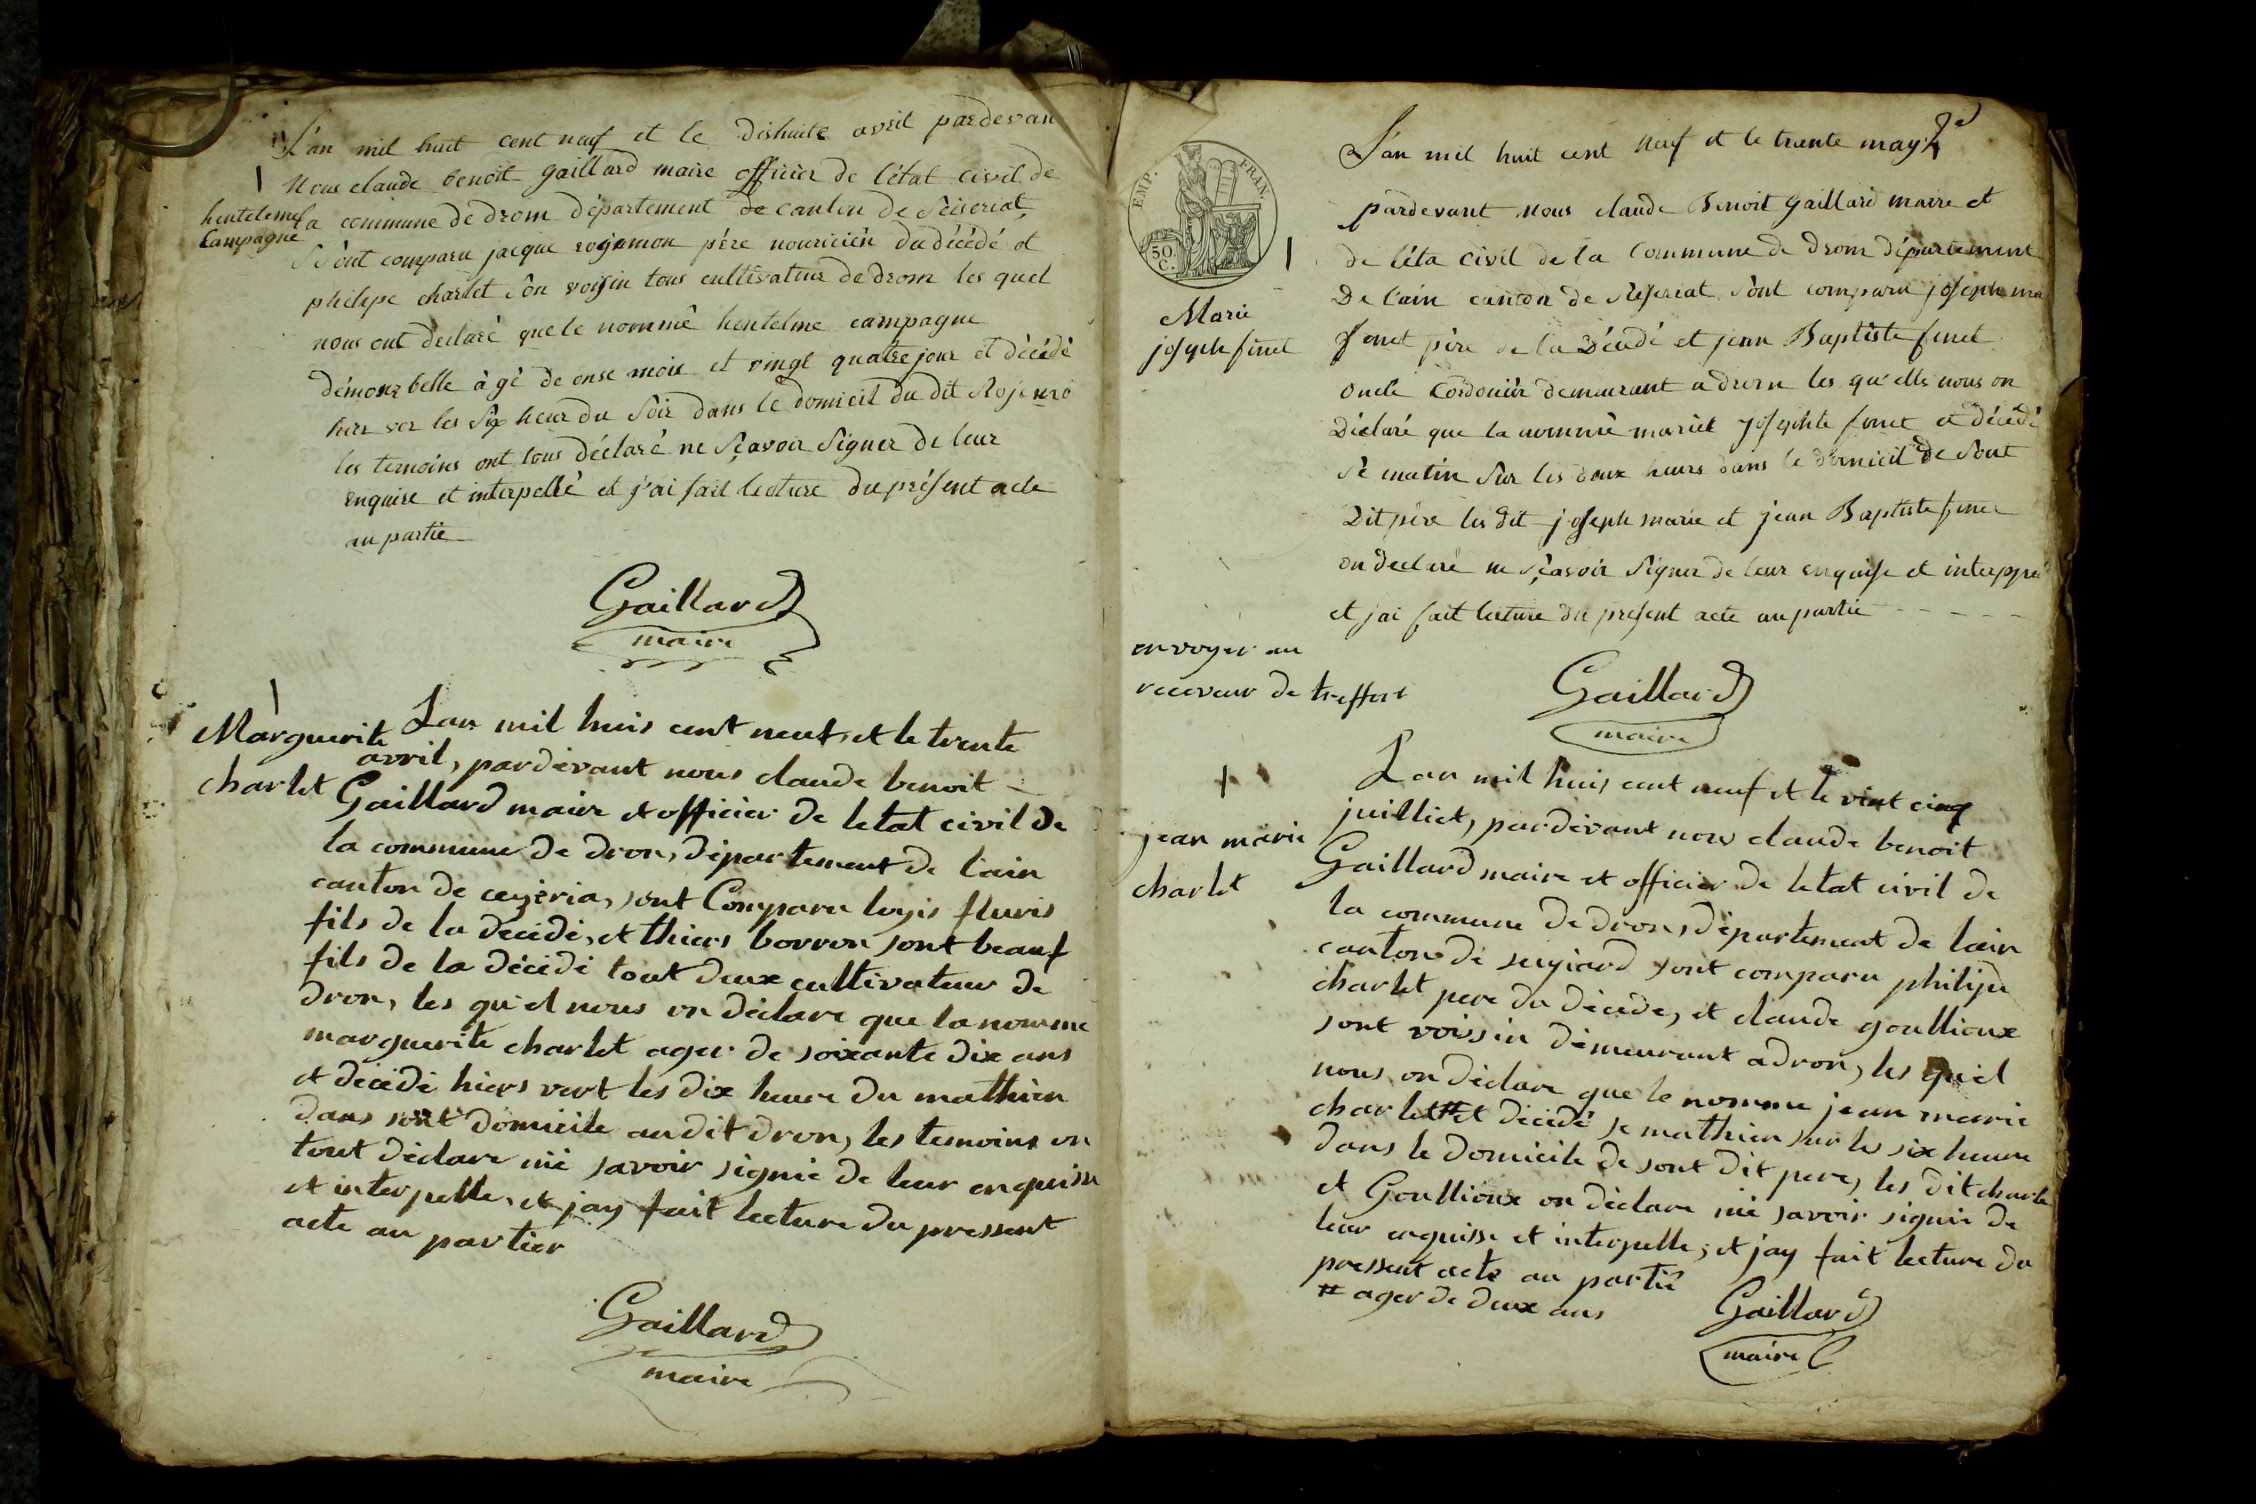 L'an mil huit cent neuf et le dishuite avril pardevan
Nous claude benoit gaillard maire officier de l'état civil de
henteleme
Campagne
la commune de drom département de canton de Seiseriat,
Sont comparu jacque rojamon père nouricièr du décédé et
philipe charlet son voisin tous cultivateur de drom les quel
nous ont declaré que le nommé hentelme campagne
démour belle àgé de onse mois et vingt quatre jour et décédé
hier ver les six heur du soir dans le domicil du dit Rojemo
les temoins ont tous déclaré ne sçavoir signer de leur
enquise et interpellé et j'ai fait lecture du présent acte
au partie
Gaillard
maire
Marguerite
charlet
Lan mil huis cent neuf, et le trente
avril, pardevant nous claude benoit
Gaillard maire et officier de letat civil de
la commune de dron, département de lain
canton de cezeria, sont Comparu loyis fluris
fils de la décédé, et thiers borron sont beauf
fils de la décédé tout deux cultivateur de
dron, les qu'el nous on déclare que la nomme
marguerite charlet ager de soixante dix ans
et décédé hiers vert les dix heure du mathien
dans sont domicile audit dron, les temoins on
tout déclare nié savoir signié de leur enquisse
et interpelle, et jay fait lecture du pressent
acte au partier
Gaillard
maire
EMP. FRAN.
50 C.
L'an mil huit cent Neuf et le trente may
pardevant nous claude Benoit gaillard maire et
de l'éta civil de la commune de drom département
De l'ain canton de Siseriat sont comparu joseph ma
Marie
joseph finet
finet père de la Décédé et jean Baptiste finet
oncle cordonièr demeurant a drom les qu'elle nous on
Déclaré que la nommé mariet josephte finet et décédé
sé matin sur les deux heurs dans le domicil de sont
Dit père les dit joseph marie et jean Baptiste finet
on declaré ne sçavoir signer de leur enquise et interppé
et jai fait lecture du présent acte au partie
envoyer au
receveur de treffort
Gaillard
maire
jean marie
charlet
Lan mil huis cent neuf et le vint cinq
juilliet, pardevant nous claude benoit
Gaillard maire et officier de letat civil de
la commune de dron, département de lain
canton de seyziard sont comparu philipe
charlet pere du décéde, et claude goullioux
sont voissin demeurant a dron, les quel
nous on déclare que le nomme jean marie
charlet # et décédé se mathien sur les six heure
dans le domicile de sont dit pere, les dit charle
et Goullioux on déclare nié savoir signié de
leur enquisse et interpelle, et jay fait lecture du
pressent acte au partié
# ager de deux ans
Gaillard
maire